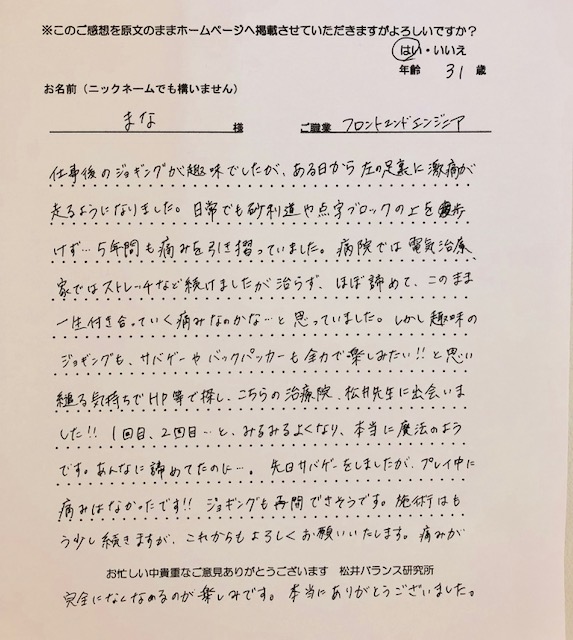 ※このご感想を原文のままホームページへ掲載させていただきますがよろしいですか？
はい・いいえ
年齢 31 歳
お名前（ニックネームでも構いません）
まな 様 ご職業 フロントエンドエンジニア
仕事後のジョギングが趣味でしたが、ある日から左の足裏に激痛が
走るようになりました。日常でも砂利道や点字ブロックの上を歩
けず…5年間も痛みを引き摺っていました。病院では電気治療、
家ではストレッチなど続けましたが治らず、ほぼ諦めて、このまま
一生付き合っていく痛みなのかな…と思っていました。しかし趣味の
ジョギングも、サバゲーやバックパッカーも全力で楽しみたい!!と思い
縋る気持ちでHP等で探し、こちらの治療院、松井先生に出会いま
した!! 1回目、2回目…と、みるみるよくなり、本当に魔法のよう
です。あんなに諦めてたのに…。先日サバゲーをしましたが、プレイ中に
痛みはなかったです!! ジョギングも再開できそうです。施術はも
う少し続きますが、これからもよろしくお願いいたします。痛みが
お忙しい中貴重なご意見ありがとうございます 松井バランス研究所
完全になくなるのが楽しみです。本当にありがとうございました。